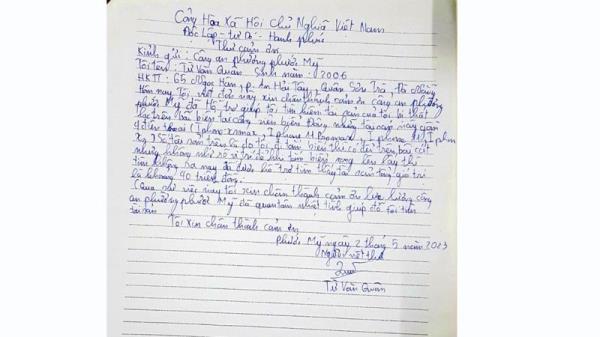 Cộng Hòa Xã Hội Chủ Nghĩa Việt Nam
Độc Lập - Tự Do - Hạnh phúc
Thư cảm ơn
Kính gửi: Công an phường phước Mỹ
Tôi tên: Từ Văn Quân Sinh năm: 2006
HKTT: 65 Ngọc Hân, p. An Hải Tây, Quận Sơn Trà, Đà Nẵng
Hôm nay Tôi viết thư này xin chân thành cảm ơn công an phường
phước Mỹ đã Hỗ trợ giúp tôi tìm kiếm tài sản của tôi bị thất
lạc trên bãi biển tại công viên biển Đông những tài sản này gồm
4 điện thoại (Iphone xsmax, Iphone 11 Promax, Iphone 11, Iphone
Xs) Số tài sản trên là do tôi đi tắm biển thì có để trên bãi cát
nhưng không nhớ rõ vị trí để khi tắm biển xong lên lấy thì
tìm không ra nay đã được hỗ trợ tìm thấy tài sản trên, giá trị
là khoảng 40 triệu đồng.
Qua sự việc này tôi xin chân thành cảm ơn lực lượng công
an phường phước Mỹ đã quan tâm nhiệt tình giúp đỡ tôi tìm
tài sản
Tôi xin chân thành cảm ơn
phước Mỹ ngày 2 tháng 5 năm 2023
Người viết thư
Từ Văn Quân